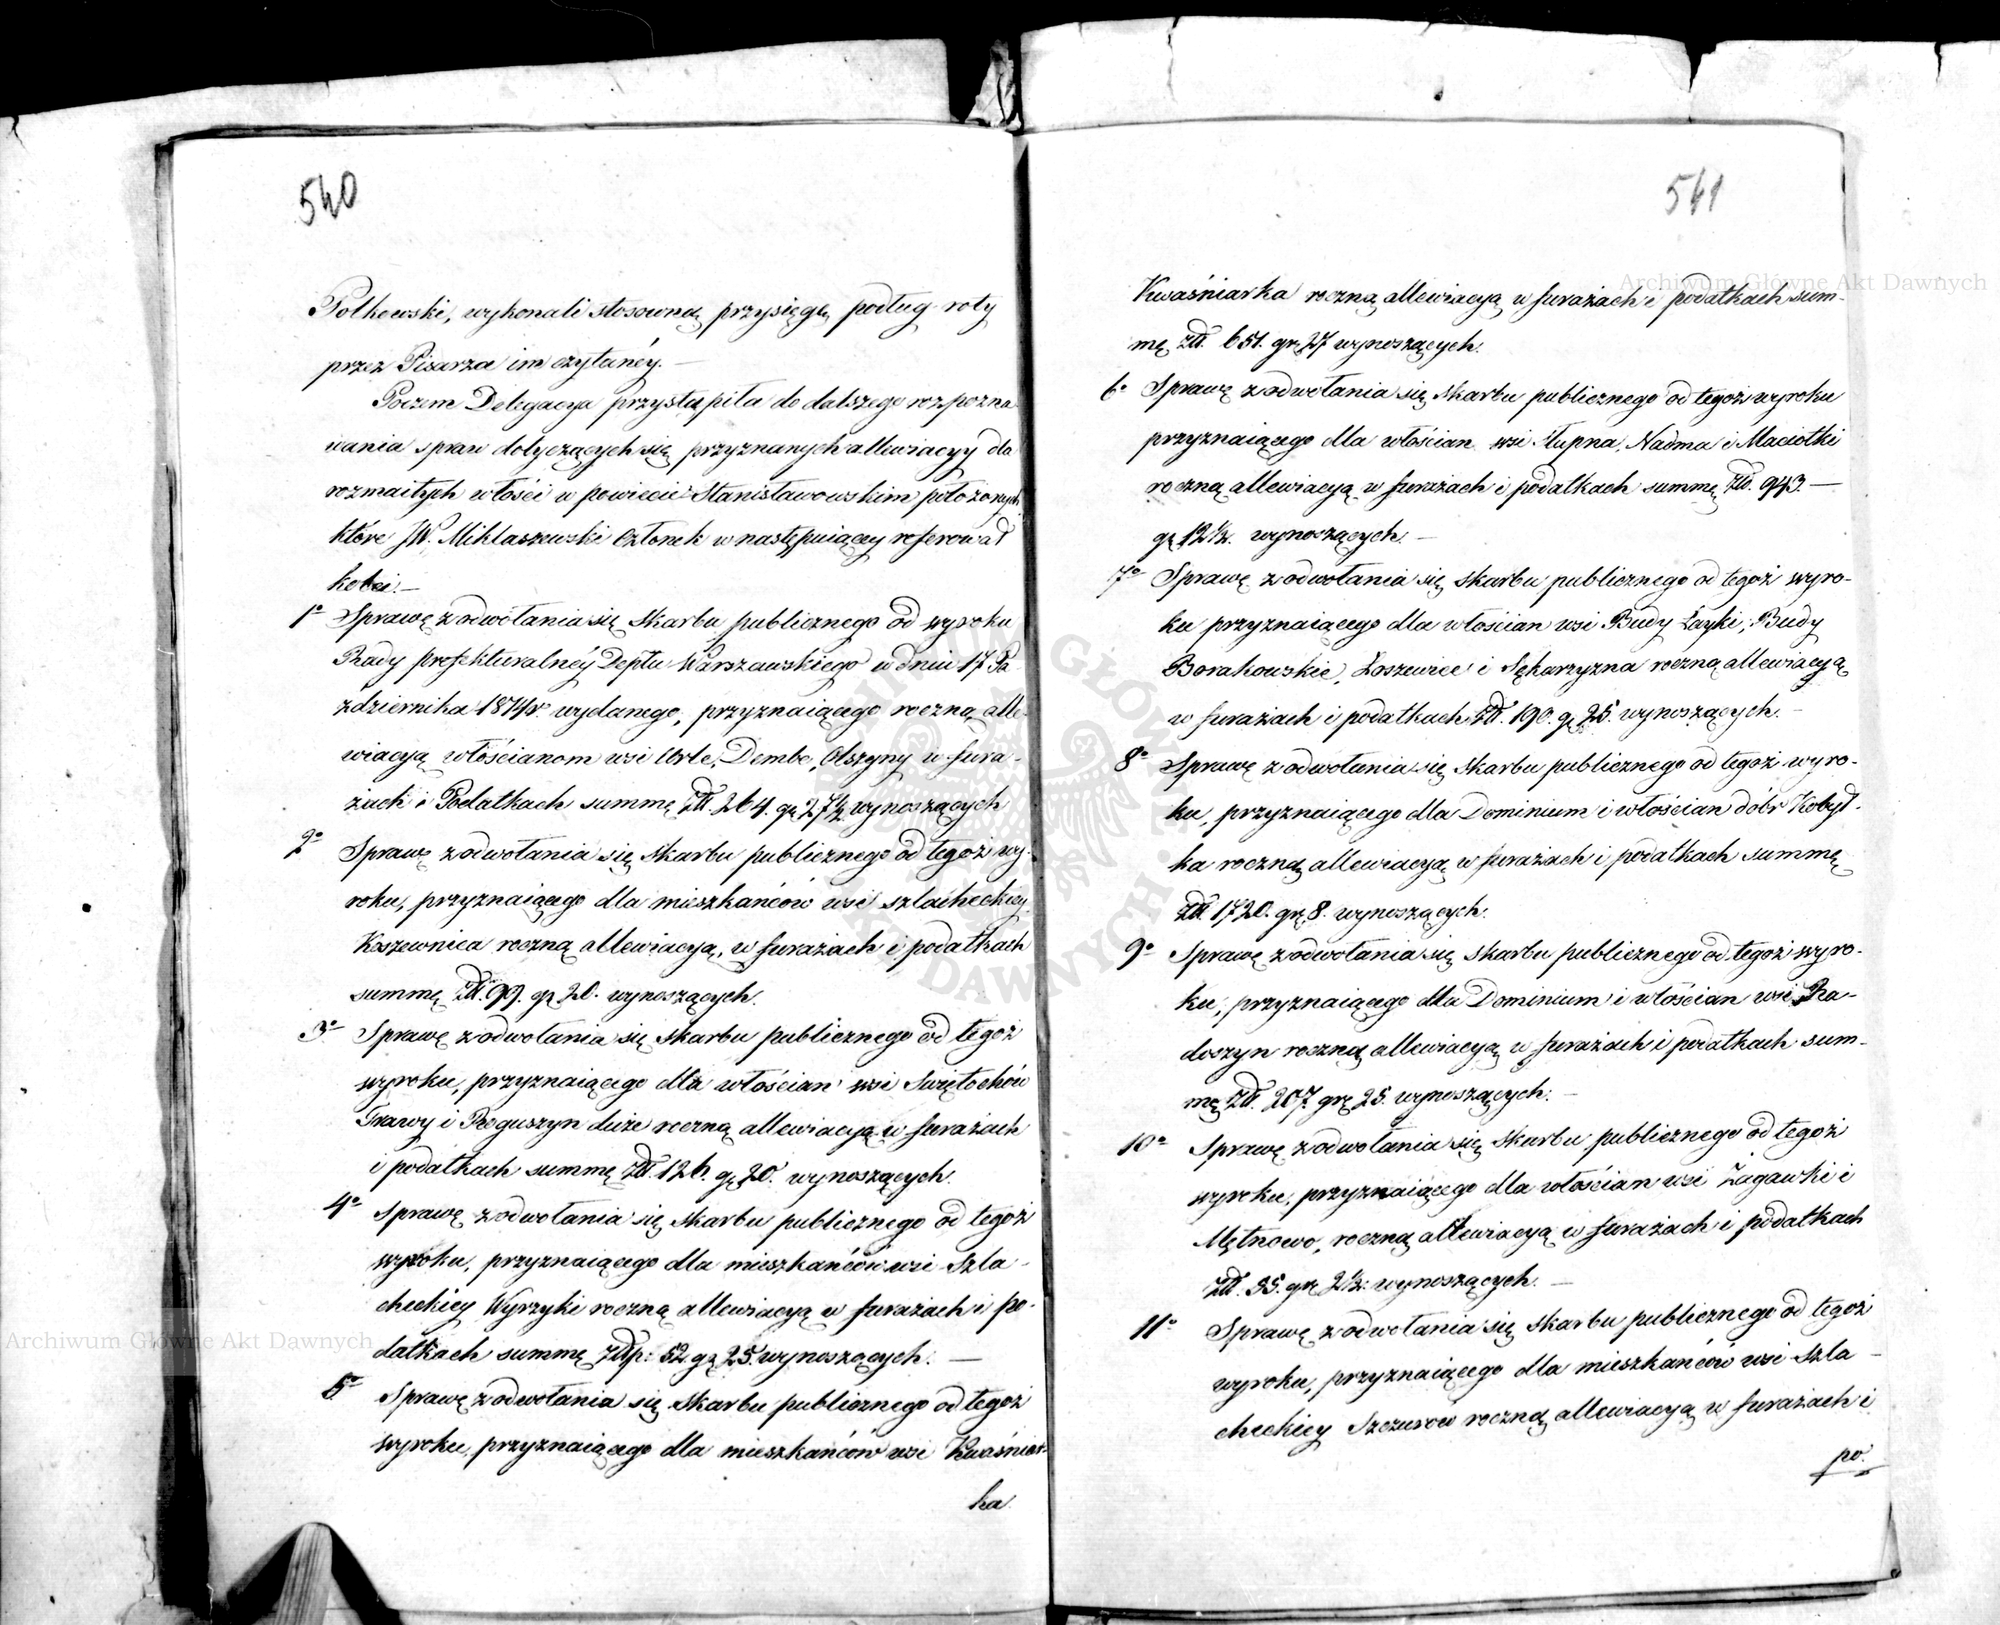 540
Polkowski, wykonali stosowną przysięgę podług roty
przez Pisarza im czytanéy.—
Poczem Delegacya przystąpiła do dalszego rozpozna
wania spraw dotyczących się przyznanych allewiacyy dla
rozmaitych włości w powiecie Stanisławowskim położonych
które JW. Miklaszewski Członek w następuiącey referował
kolei.—
1o Sprawę z odwołania się Skarbu publicznego od wyroku
Rady prefekturalnéy Deptu Warszawskiego w dniu 17 Pa
ździernika 1814r. wydanego, przyznaiącego roczną alle-
wiacyą włościanom wsi Urle, Dembe, Olszyny w fura-
żach i Podatkach summę Złł. 264. gr 27½ wynoszących
2o Sprawę z odwołania się Skarbu publicznego od tegoż wy-
roku, przyznaiącego dla mieszkańców wsi szlacheckiey
Koszewnica roczną allewiacyą, w furażach i podatkach
summę Złł. 99. gr 20. wynoszących.
3o Sprawę z odwołania się Skarbu publicznego od tegoż
wyroku, przyznaiącego dla włościan wsi Świętochów
Trawy i Roguszyn duże roczną allewiacyą w furażach
i podatkach summę Złł. 126. gr 20. wynoszących.
4o Sprawę z odwołania się Skarbu publicznego od tegoż
wyroku, przyznaiącego dla mieszkańców wsi Szla-
checkiey Wyrzyki roczną allewiacyą w furażach i po-
datkach summę Złp: 52 gr 25. wynoszących. —
5o Sprawę z odwołania się Skarbu publicznego od tegoż
wyroku przyznaiącego dla mieszkańców wsi Kwaśniar-
ka
541
Kwaśniarka roczną allewiacyą w furażach i podatkach sum-
mę Złł. 651. gr 27 wynoszących.
6o Sprawę z odwołania się Skarbu publicznego od tegoż wyroku
przyznaiącego dla włościan wsi Słupna, Nadma i Maciołki
roczną allewiacyą w furażach i podatkach summę Złł. 943.—
gr 12½. wynoszących.—
7o Sprawę z odwołania się Skarbu publicznego od tegoż wyro-
ku przyznaiącego dla włościan wsi Budy Zayki, Budy
Borakowskie, Łoszewiec i Sękarzyzna roczną allewiacyą
w furażach i podatkach Złł. 190. gr 25. wynoszących.—
8o Sprawę z odwołania się Skarbu publicznego od tegoż wyro-
ku, przyznaiącego dla Dominium i włościan dóbr Kobył-
ka roczną allewiacyą w furażach i podatkach summę
Złł. 1720. gr 8. wynoszących.
9o Sprawę z odwołania się Skarbu publicznego od tegoż wyro-
ku, przyznaiącego dla Dominium i włościan wsi Ra-
doszyn roczną allewiacyą w furażach i podatkach sum-
mę Złł. 207. gr 25. wynoszących.—
10o Sprawę z odwołania się Skarbu publicznego od tegoż
wyroku, przyznaiącego dla włościan wsi Zagawki i
Mętnowo, roczną allewiacyą w furażach i podatkach
Złł. 35. gr 2½. wynoszących.—
11o Sprawę z odwołania się Skarbu publicznego od tegoż
wyroku, przyznaiącego dla mieszkańców wsi Szla-
checkiey Szczurow roczną allewiacyą w furażach i
po.
Archiwum Główne Akt Dawnych
Archiwum Główne Akt Dawnych